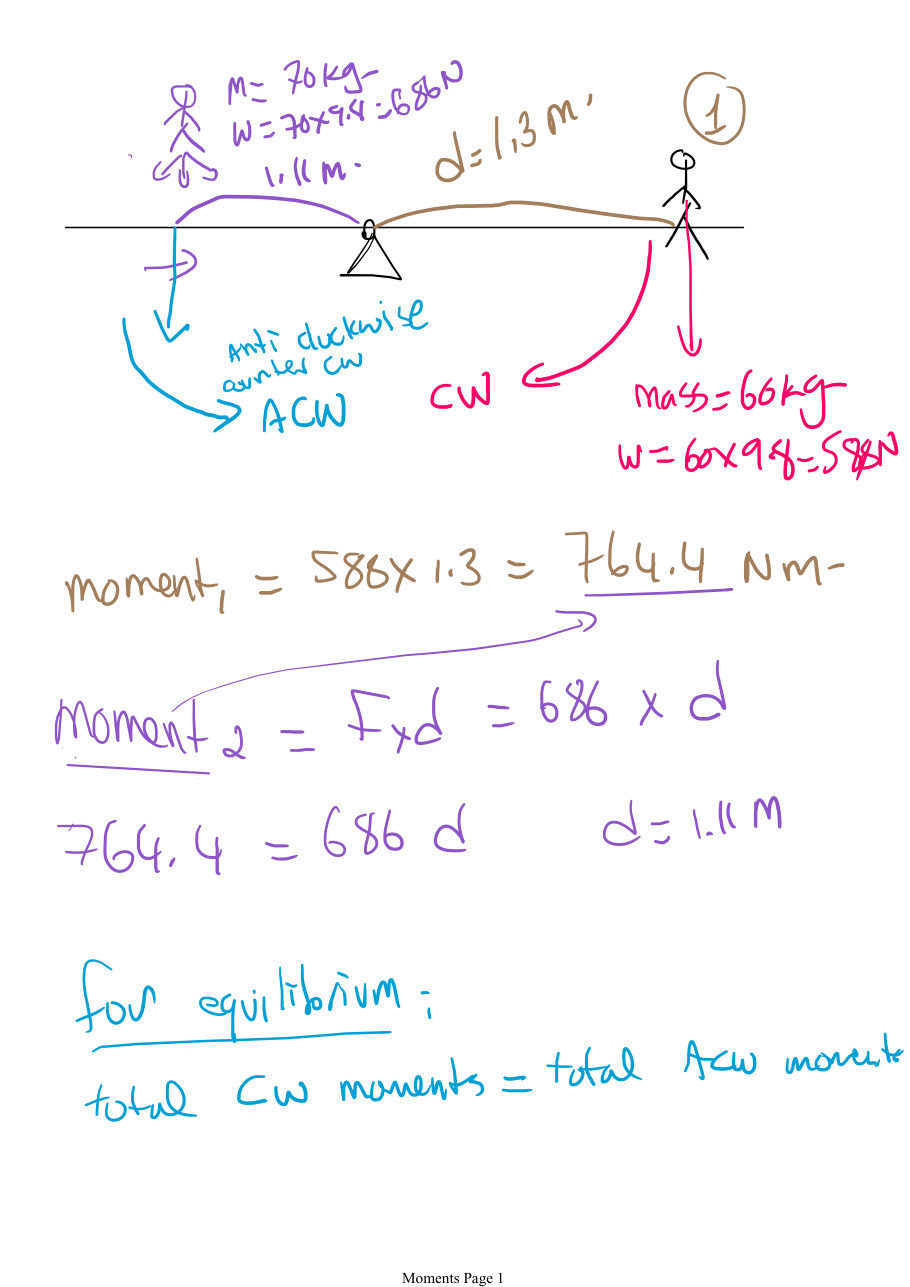 m = 70kg
W = 70x9.8 = 686N
1.11 m.
d = 1.3 m.
1
Anti cluckwise
counter cw
ACW
CW
mass = 60kg
W = 60x9.8 = 588N
moment1 = 588x1.3 = 764.4 Nm
moment2 = Fxd = 686 x d
764.4 = 686 d d = 1.11 M
for equilibrium :
total CW moments = total ACW moments
Moments Page 1